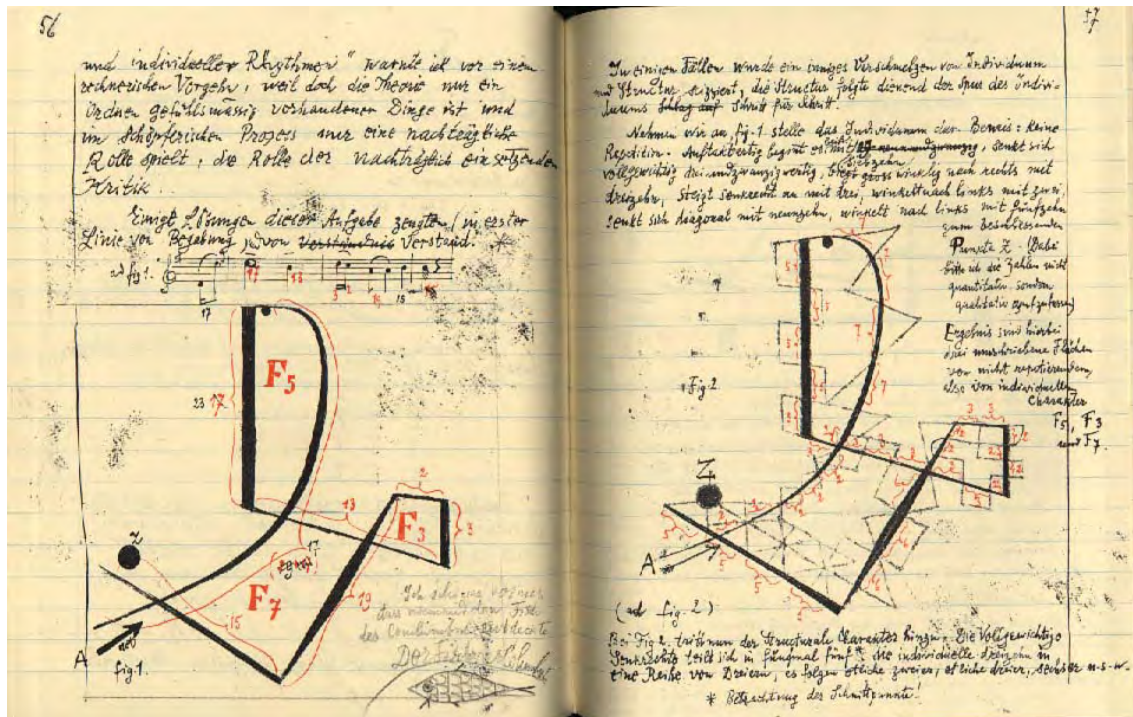 56
und individueller Rhythmen" warnte ich vor einem
rechnerischen Vorgehn, weil doch die Theorie nur ein
Ordnen gefühlsmässig vorhandener Dinge ist und
im schöpferischen Prozess nur eine nachträgliche
Rolle spielt, die Rolle der nachträglich einsetzenden
Kritik.
Einige Lösungen dieser Aufgabe zeugten (in erster
Linie von Begabung) von Verständnis Verstand.
ad fig 1.
17
17
13
15
F5
23 17
13
2
F3
3
Z
17
F7
19
15
A
fig 1.
Der
57
In einigen Fällen wurde ein inniges Verschmelzen von Individuum
und Structur skizziert, die Structur folgte dienend der Spur des Indivi-
duums Schlag auf Schritt für Schritt.
Nehmen wir an, fig. 1 stelle das Individuum dar. Beweis: keine
Repetition. Auftaktartig beginnt es mit siebzehn, senkt sich
vollgewichtig dreiundzwanzigwertig, winklig nach rechts mit
dreizehn, steigt senkrecht an mit drei, winkelt nach links mit zwei,
senkt sich diagonal mit neunzehn, winkelt nach links mit fünfzehn
zum beschliessenden
Punkte Z. (Dabei
bitte ich die Zahlen nicht
quantitativ sondern
qualitativ aufzufassen)
Ergebnis sind hierbei
drei umschriebene Flächen
von nicht repetierendem,
also von individuellem
Charakter
F5, F3
und F7.
Fig 2
7
7
7
5
5
5
3
3
2
Z
A
5
5
5
6
6
(ad fig. 2)
Bei Fig 2. tritt nun der structurale Charakter hinzu. Die vollgewichtige
Senkrechte teilt sich in fünfmal fünf * die individuelle dreizehn in
eine Reihe von Dreiern, es folgen etliche zweier, etliche dreier, sechser u.s.w.
* Betrachtung der Schnittpunkte!